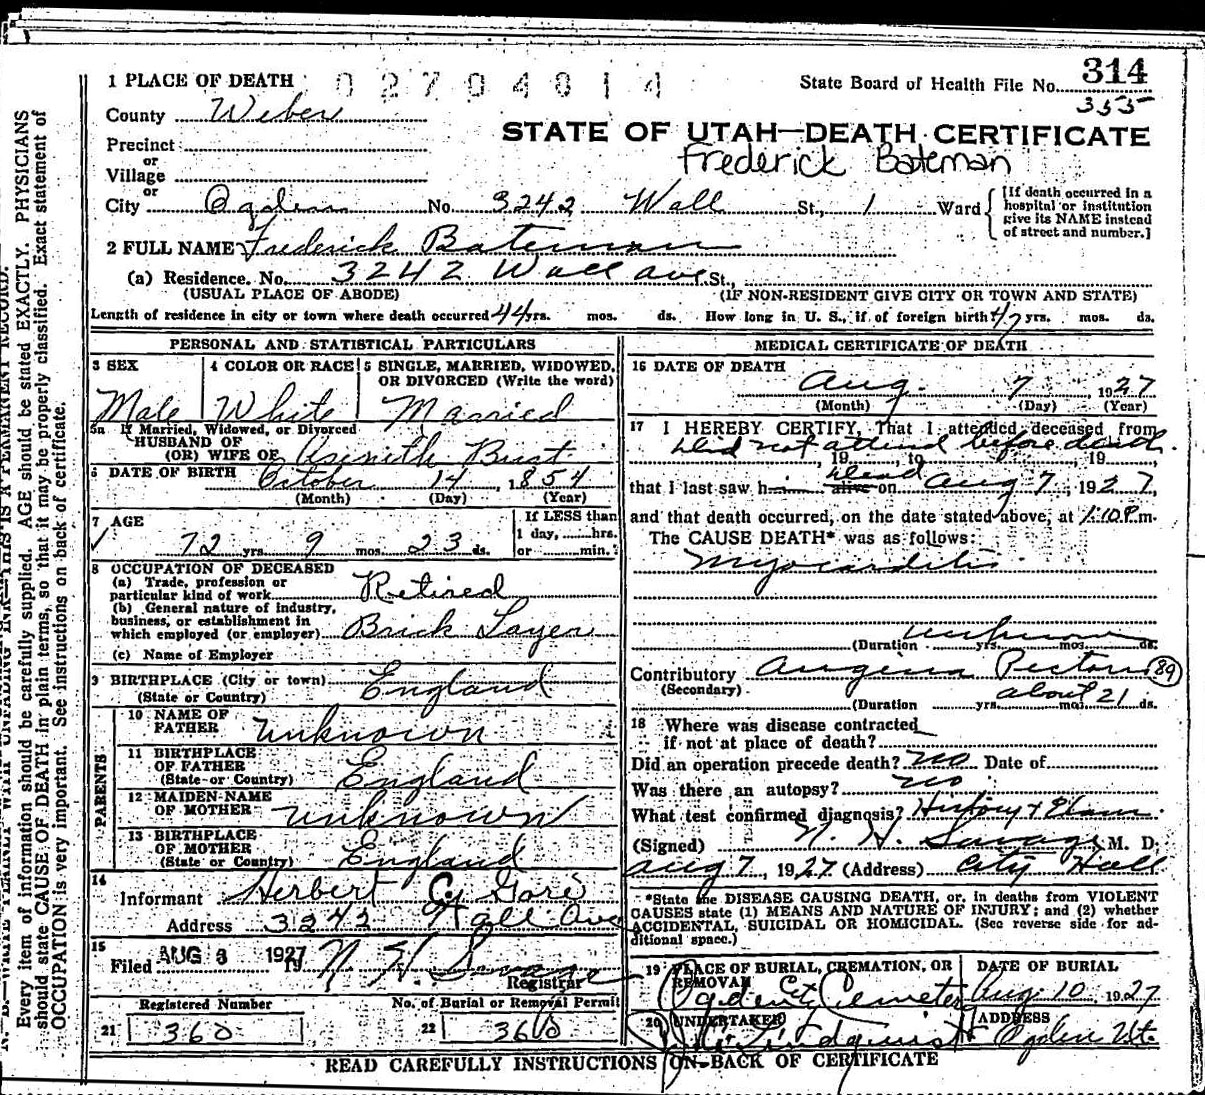 1 PLACE OF DEATH 02704014
State Board of Health File No. 314
355
County Weber
STATE OF UTAH—DEATH CERTIFICATE
Precinct
or
Frederick Bateman
Village
or
City Ogden No. 3242 Wall St., 1 Ward
[If death occurred in a
hospital or institution
give its NAME instead
of street and number.]
2 FULL NAME Frederick Bateman
(a) Residence. No. 3242 Wall ave St.,
(USUAL PLACE OF ABODE) (IF NON-RESIDENT GIVE CITY OR TOWN AND STATE)
Length of residence in city or town where death occurred 44 yrs. mos. ds. How long in U. S., if of foreign birth? 47 yrs. mos. ds.
PERSONAL AND STATISTICAL PARTICULARS
3 SEX
Male
4 COLOR OR RACE
White
5 SINGLE, MARRIED, WIDOWED,
OR DIVORCED (Write the word)
Married
5a If Married, Widowed, or Divorced
HUSBAND OF
(OR) WIFE OF
6 DATE OF BIRTH October 14, 1854
(Month) (Day) (Year)
7 AGE
72 yrs. 9 mos. 23 ds.
If LESS than
1 day, hrs.
or min.
8 OCCUPATION OF DECEASED
(a) Trade, profession or
particular kind of work Retired
(b) General nature of industry,
business, or establishment in
which employed (or employer) Brick Layer
(c) Name of Employer
9 BIRTHPLACE (City or town) England
(State or Country)
PARENTS
10 NAME OF
FATHER unknown
11 BIRTHPLACE
OF FATHER
(State or Country) England
12 MAIDEN NAME
OF MOTHER unknown
13 BIRTHPLACE
OF MOTHER
(State or Country) England
14
Informant Herbert
Address 3242 Wall Ave
15
Filed AUG 8 1927 19 N. H. Savage
Registrar
Registered Number
21 360
No. of Burial or Removal Permit
22 360
MEDICAL CERTIFICATE OF DEATH
16 DATE OF DEATH
Aug. 7 1927
(Month) (Day) (Year)
17 I HEREBY CERTIFY, That I attended deceased from
Did not attend before death.
, 19 , to , 19
that I last saw h alive dead on Aug 7, 1927,
and that death occurred, on the date stated above, at 1:10 P.m.
The CAUSE DEATH* was as follows:
Myocarditis
unknown
(Duration yrs. mos. ds.
Contributory Angina Pectoris 89
(Secondary) about 21
(Duration yrs. mos. ds.
18 Where was disease contracted
if not at place of death?
Did an operation precede death? no Date of
Was there an autopsy? no
What test confirmed diagnosis? History +
(Signed) N. H. Savage, M. D.
Aug 7, 1927 (Address) City Hall
*State the DISEASE CAUSING DEATH, or, in deaths from VIOLENT
CAUSES state (1) MEANS AND NATURE OF INJURY; and (2) whether
ACCIDENTAL, SUICIDAL OR HOMICIDAL. (See reverse side for ad-
ditional space.)
19 PLACE OF BURIAL, CREMATION, OR
REMOVAL
Ogden City Cemetery
DATE OF BURIAL
Aug. 10, 1927
20 UNDERTAKER
Lindquist
ADDRESS
Ogden Ut.
READ CAREFULLY INSTRUCTIONS ON BACK OF CERTIFICATE
Every item of information should be carefully supplied. AGE should be stated EXACTLY. PHYSICIANS
should state CAUSE OF DEATH in plain terms, so that it may be properly classified. Exact statement of
OCCUPATION is very important. See instructions on back of certificate.